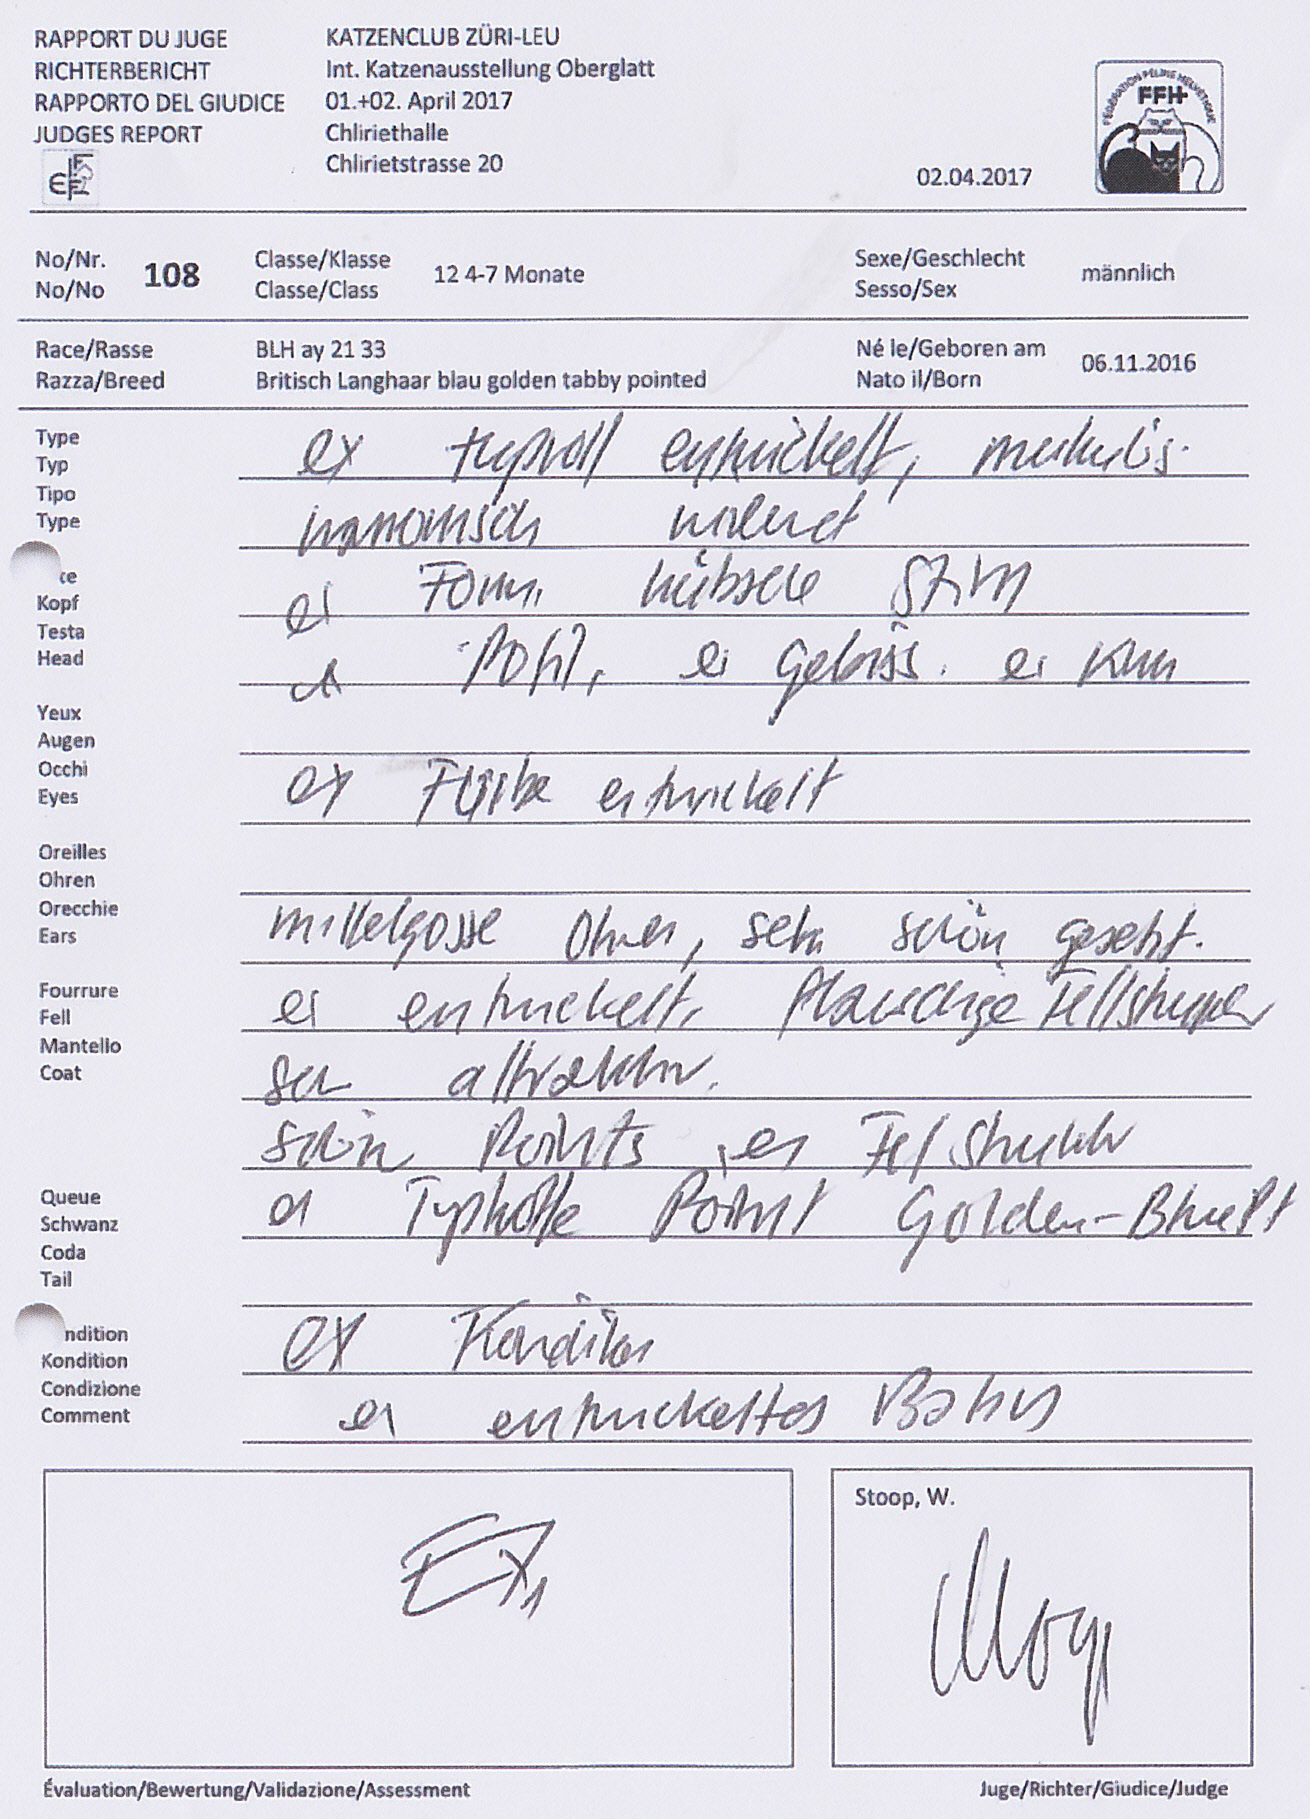 RAPPORT DU JUGE
RICHTERBERICHT
RAPPORTO DEL GIUDICE
JUDGES REPORT
KATZENCLUB ZÜRI-LEU
Int. Katzenausstellung Oberglatt
01.+02. April 2017
Chliriethalle
Chlirietstrasse 20
02.04.2017
FÉDÉRATION FÉLINE HELVÉTIQUE
FFH
No/Nr.
No/No
108
Classe/Klasse
Classe/Class
12 4-7 Monate
Sexe/Geschlecht
Sesso/Sex
männlich
Race/Rasse
Razza/Breed
BLH ay 21 33
Britisch Langhaar blau golden tabby pointed
Né le/Geboren am
Nato il/Born
06.11.2016
Type
Typ
Tipo
Type
ex typvoll entwickelt,
harmonisch
te
Kopf
Testa
Head
ex Form, hübsche Stirn
ex Profil, ex Gebiss. ex Kinn
Yeux
Augen
Occhi
Eyes
ex Farbe entwickelt
Oreilles
Ohren
Orecchie
Ears
mittelgrosse Ohren, sehr schön gesetzt.
Fourrure
Fell
Mantello
Coat
ex entwickelt,
sehr attraktiv.
schön Points, ex Fellstruktur
Queue
Schwanz
Coda
Tail
ex Point Golden-
ndition
Kondition
Condizione
Comment
ex Kondition
ex entwickeltes Baby
Ex1
Stoop, W.
Évaluation/Bewertung/Validazione/Assessment
Juge/Richter/Giudice/Judge